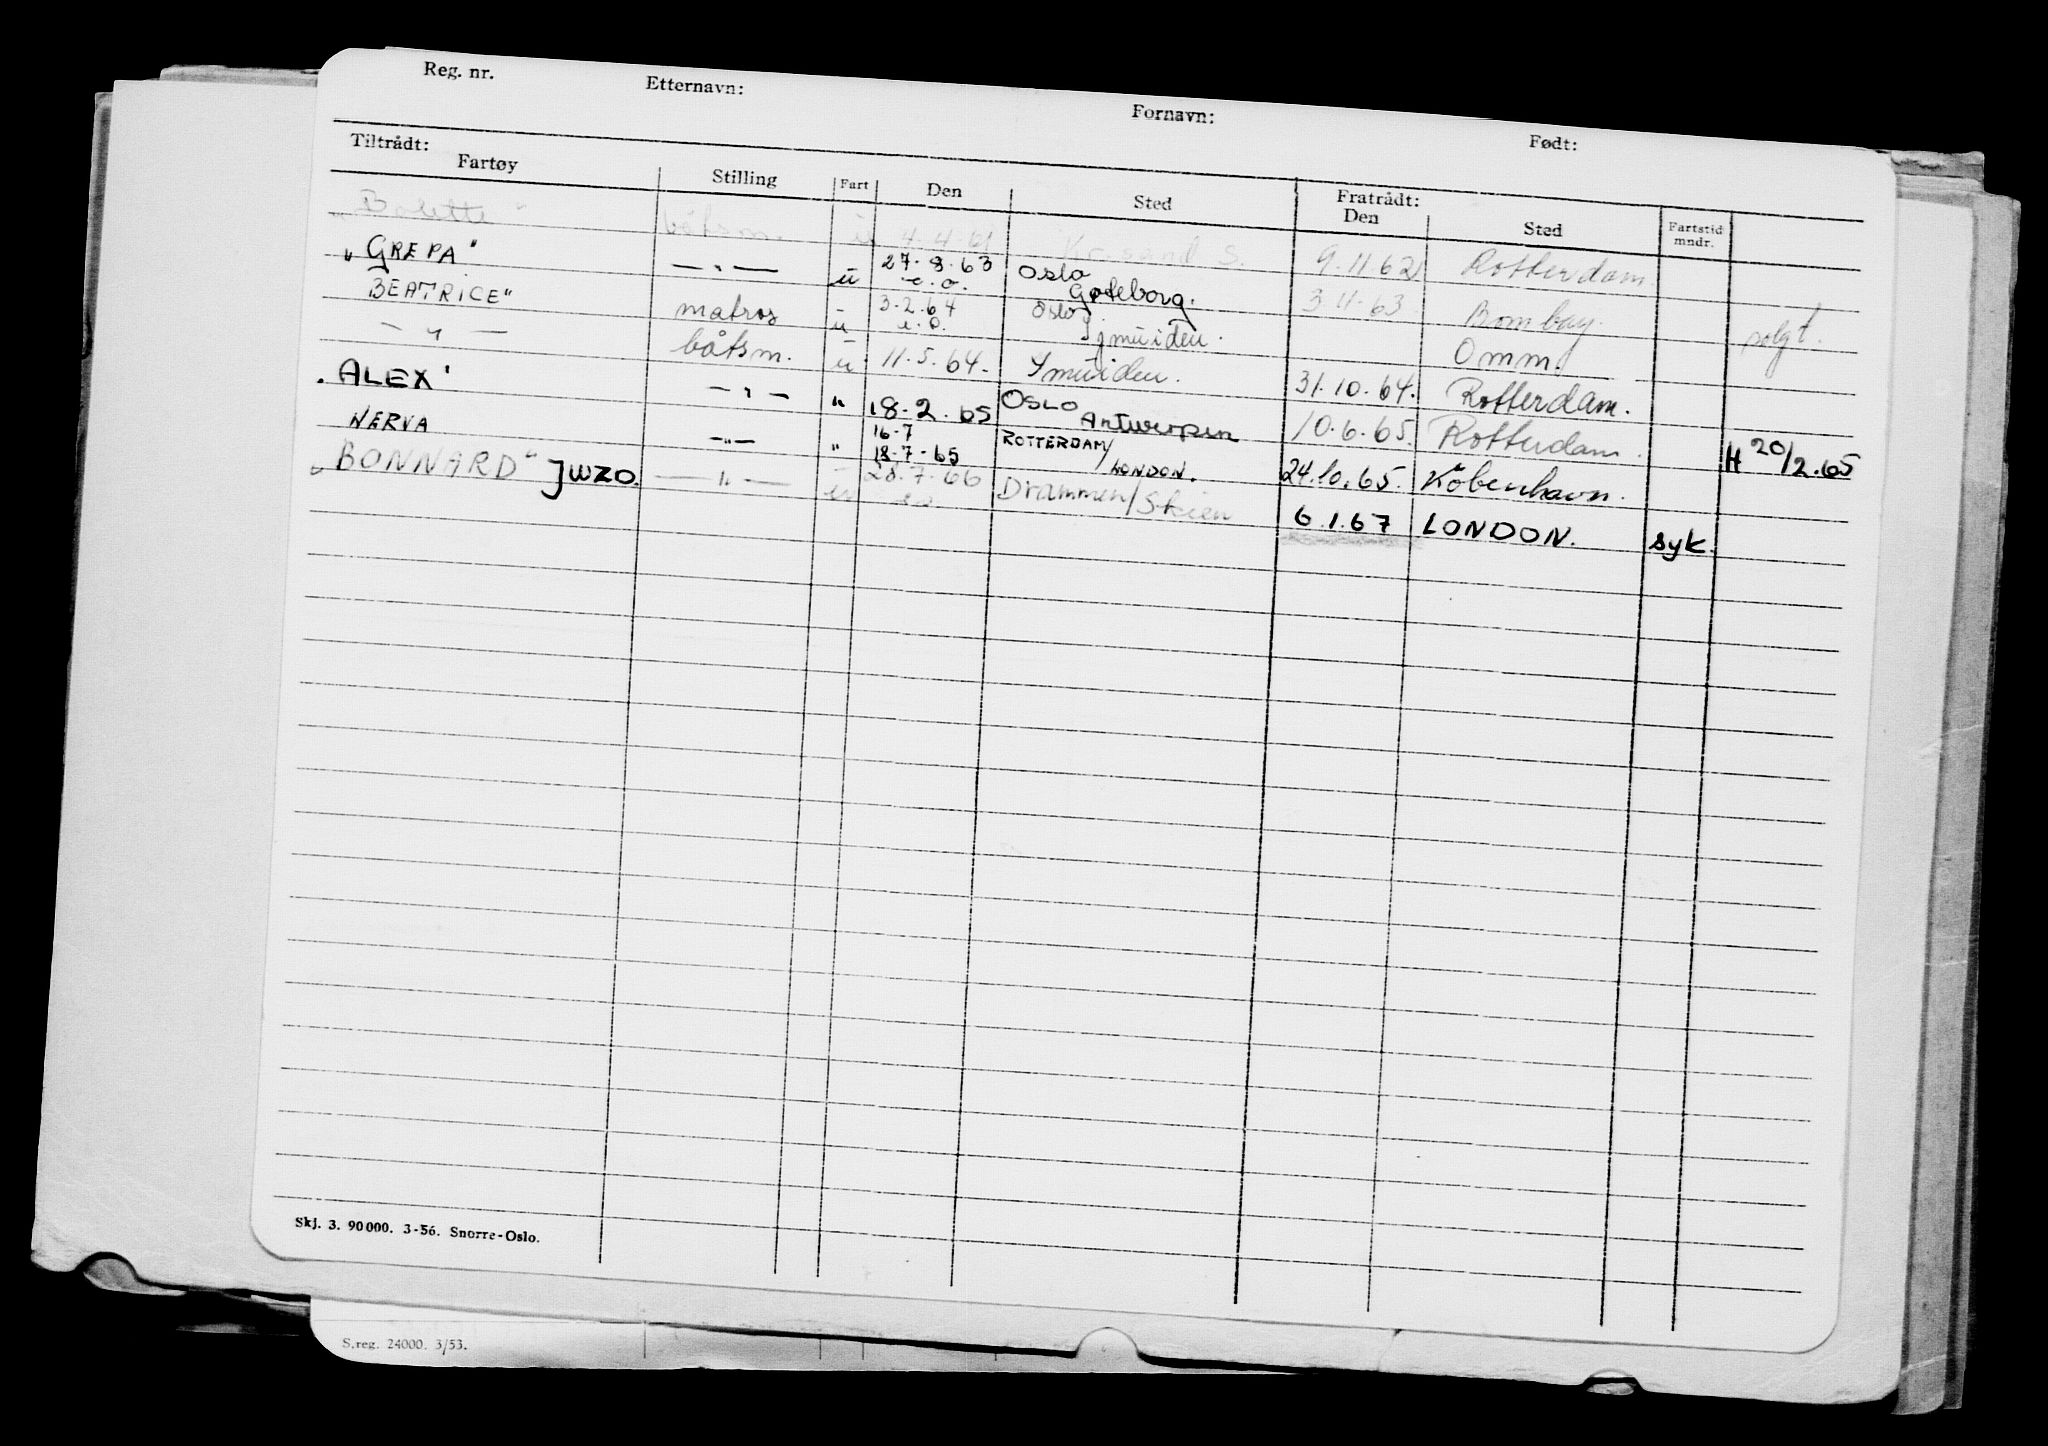 Reg. nr. Etternavn: Fornavn: Født:
Tiltrådt: Fratrådt:
Fartøy Stilling Fart Den Sted Den Sted Fartstid mndr.
båtsm. u 4.4.61 Kr.sand S. 9.11.62 Rotterdam
"GREPA" — " — u 27.8.63 e.o. Oslo Gøteborg. 3.11.63 Bombay. solgt.
BEATRICE" matros u 3.2.64 e.o. Oslo Ijmuiden. Omm.
— " — båtsm. u 11.5.64. Ymuiden. 31.10.64. Rotterdam.
"ALEX" — " — " 18.2.65 OSLO Antwerpen 10.6.65. Rotterdam. H 20/2.65
NERVA — " — " 16-7 18-7-65 ROTTERDAM/LONDON. 24.10.65. København.
"BONNARD" JWZO. — " — u 28.7.66 e.o. Drammen/Skien 6.1.67 LONDON. syk.
Skj. 3. 90 000. 3-56. Snorre-Oslo.
S.reg. 24000. 3/53.